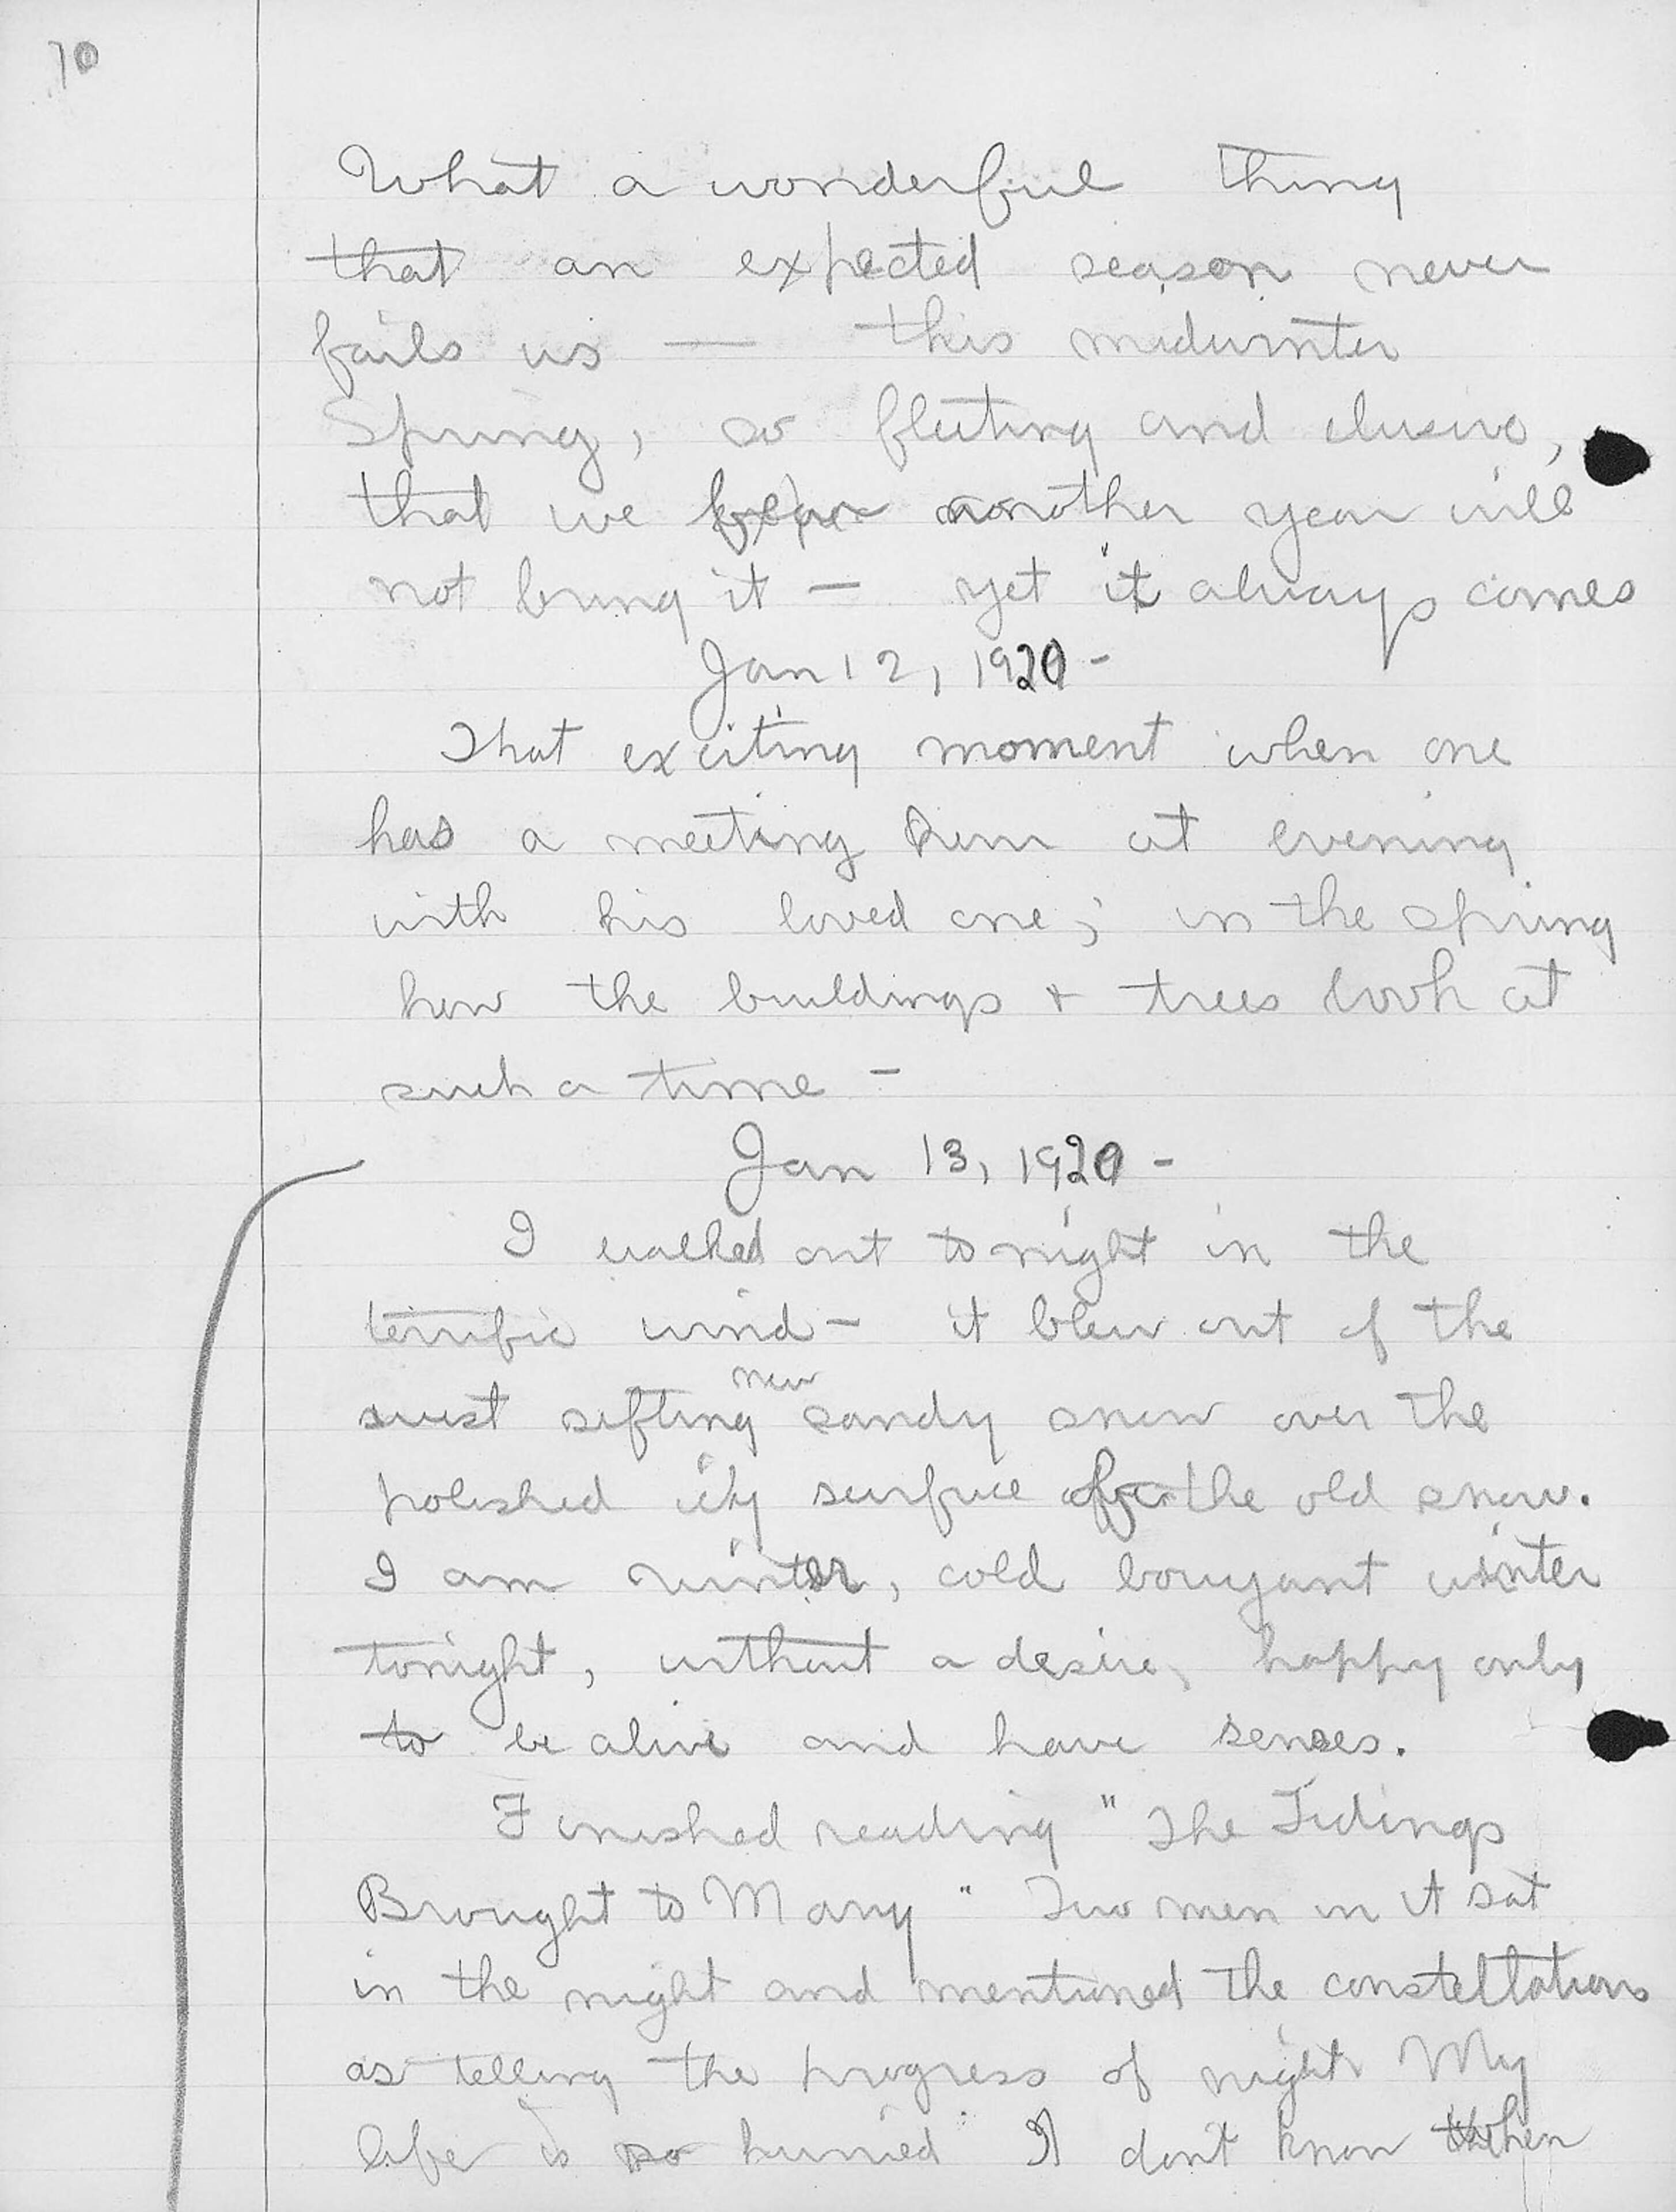 10
What a wonderful thing
that an expected season never
fails us — this midwinter
Spring, so fleeting and elusive,
that we fear another year will
not bring it — yet it always comes
Jan 12, 1920 -
That exciting moment when one
has a meeting him at evening
with his loved one; in the spring
how the buildings + trees look at
such a time -
Jan 13, 1920 -
I walked out to night in the
terrific wind - it blew out of the
new
west sifting sandy snow over the
polished icy surface of the old snow.
I am winter, cold bouyant winter
tonight, without a desire, happy only
to be alive and have senses.
Finished reading "The Tidings
Brought to Mary" Two men in it sat
in the night and mentioned the constellations
as telling the progress of night. My
life is so hurried I don't know when